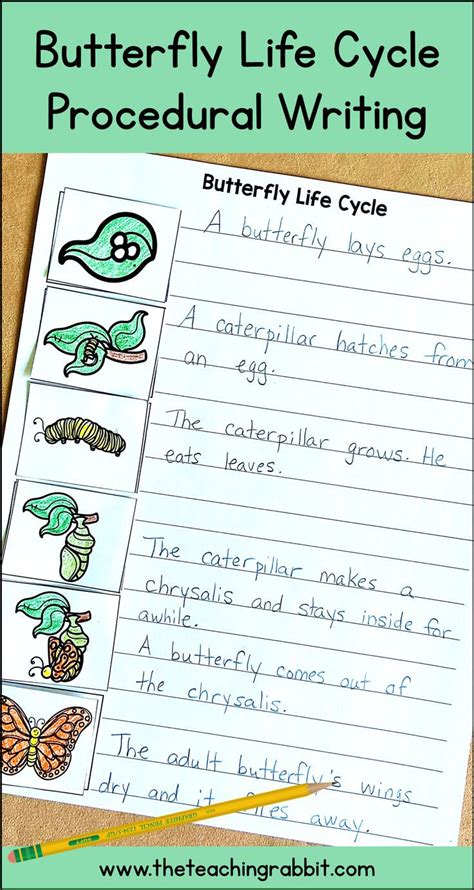 Butterfly Life Cycle
Procedural Writing
Butterfly Life Cycle
A butterfly lays eggs.
A caterpillar hatches from
an egg.
The caterpillar grows. He
eats leaves.
The caterpillar makes a
chrysalis and stays inside for
awhile.
A butterfly comes out of
the chrysalis.
The adult butterfly's wings
dry and it flies away.
www.theteachingrabbit.com